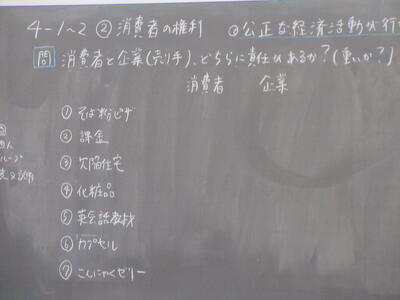 4-1~2 ② 消費者の権利 ◎公正な経済活動が行
問 消費者と企業(売り手)、どちらに責任があるか?(重いか?)
消費者 企業
① そば粉ピザ
② 課金
③ 欠陥住宅
④ 化粧品
⑤ 英会話教材
⑥ カプセル
⑦ こんにゃくゼリー